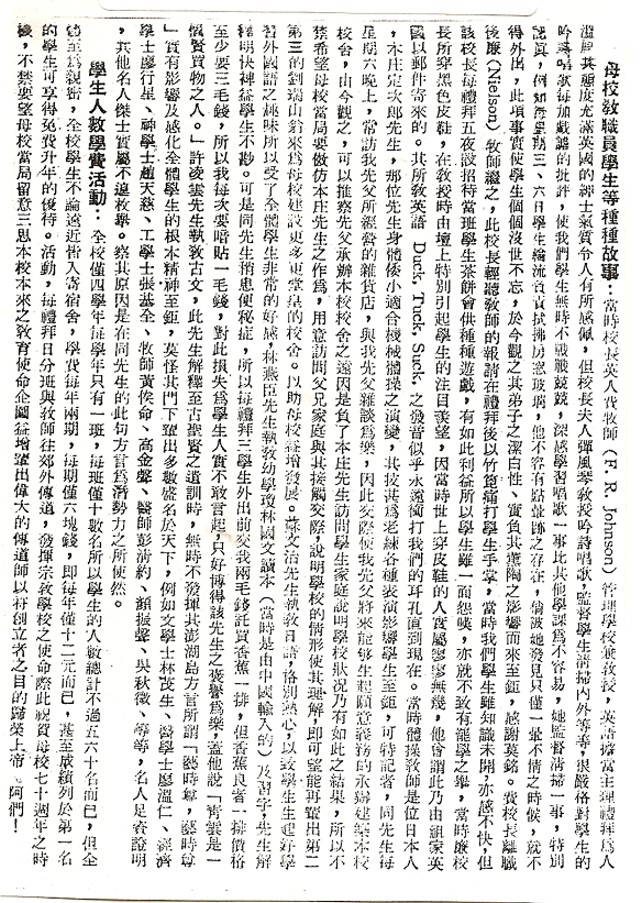 母校敎職員學生等種種故事：當時校長英人費牧師（F. R. Johnson）管理學校兼敎授，英語擔當主理禮拜爲人
溫厚其態度充滿英國的紳士氣質令人有所感佩，但校長夫人彈風琴敎授吟詩唱歌，監督學生清掃內外等等，很嚴格對學生的
吟詩唱歌每加戲謔的批評，使我們學生無時不戰戰兢兢，深感學習唱歌一事比其他學課爲不容易，她監督清掃一事，特別
認眞，例如每星期三、六日學生輪流負責拭拂房窓玻璃，他不容有點暈跡之存在，倘被她發見只僅一暈不清之時候，就不
得外出，此項事實使學生個個沒世不忘，於今觀之其弟子之潔白性、實負其薰陶之影響而來至鉅，感謝莫銘。費校長離職
後廉(Nielson) 牧師繼之，此校長輕聽敎師的報請在禮拜後以竹箆痛打學生手掌，當時我們學生雖知識未開，亦感不快，但
該校長每禮拜五夜設招待當班學生茶餅會供種種遊戲，有如此利益所以學生雖一面怨嘆，亦就不致有罷學之舉，當時廉校
長所穿黑色皮鞋，在敎授時由壇上特別引起學生的注目羨望，因當時世上穿皮鞋的人實屬寥寥無幾，他曾謂此乃由祖家英
國以郵件寄來的。其所敎英語 Duck, Tuck, Suck, 之發音似乎永遠衝打我們的耳孔直到現在。當時體操敎師是位日本人
，本庄定次郎先生，那位先生身體倭小適合機械體操之演變，其技甚爲老練各種表演影響學生至鉅，可特記者，同先生每
星期六晚上，常訪我先父所經營的雜貨店，與我先父雜談爲樂，因此交際使我先父將來能够生起願意義務的承辦建築本校
校舍，由今觀之，可以推察先父承辦本校校舍之遠因是負了本庄先生訪問學生家庭說明學校狀況乃有如此之結果，所以不
禁希望母校當局要倣仿本庄先生之作爲，用意訪問父兄家庭與其接觸交際，說明學校的情形使其理解，即可望能再輩出第二
第三的劉瑞山翁來爲母校建設更多更堂皇的校舍。以助母校益增發展。蘇文治先生執敎日語，恪別熱心，以致學生生起好學
習外國語之趣味所以受了全體學生非常的好感，林燕臣先生執敎幼學瓊林國文讀本（當時是由中國輸入的）及習字，先生解
釋明快裨益學生不尠。可是同先生稍患便秘症，所以每禮拜三學生外出前交我兩毛錢託買香蕉一排，但香蕉良者一排價格
至少要三毛錢，所以我每次要暗貼一毛錢，對此損失爲學生人實不敢言起，只好博得該先生之褒譽爲樂，蓋他說「靑雲是一
慣買物之人。」許凌雲先生執敎古文，此先生解釋至古聖賢之遺訓時，無時不發揮其澎湖島方言所謂「藝時尊，藝時尊
」實有影響及感化全體學生的根本精神至鉅，莫怪其門下輩出多數盛名於天下，例如文學士林茂生、醫學士廖溫仁、經濟
學士廖行星、神學士趙天慈、工學士張基全、牧師黃俟命、高金聲、醫師彭淸約、顏振聲、吳秋微、等等，名人足資證明
，其他名人傑士實屬不遑枚擧。察其原因是在同先生的此句方言爲潛勢力之所使然。
學生人數學費活動：全校僅四學年每學年只有一班，每班僅十數名所以學生的人數總計不過五六十名而已，但全
體至爲親密，全校學生不論遠近皆入寄宿舍，學費每年兩期，每期僅六塊錢，即每年僅十二元而已，甚至成績列於第一名
的學生可享得免費升年的優待。活動，每禮拜日分班與敎師往郊外傳道，發揮宗敎學校之使命際此祝賀母校七十週年之時
機，不禁要望母校當局留意三思本校本來之敎育使命企圖益增輩出偉大的傳道師以符創立者之目的歸榮上帝，阿們！